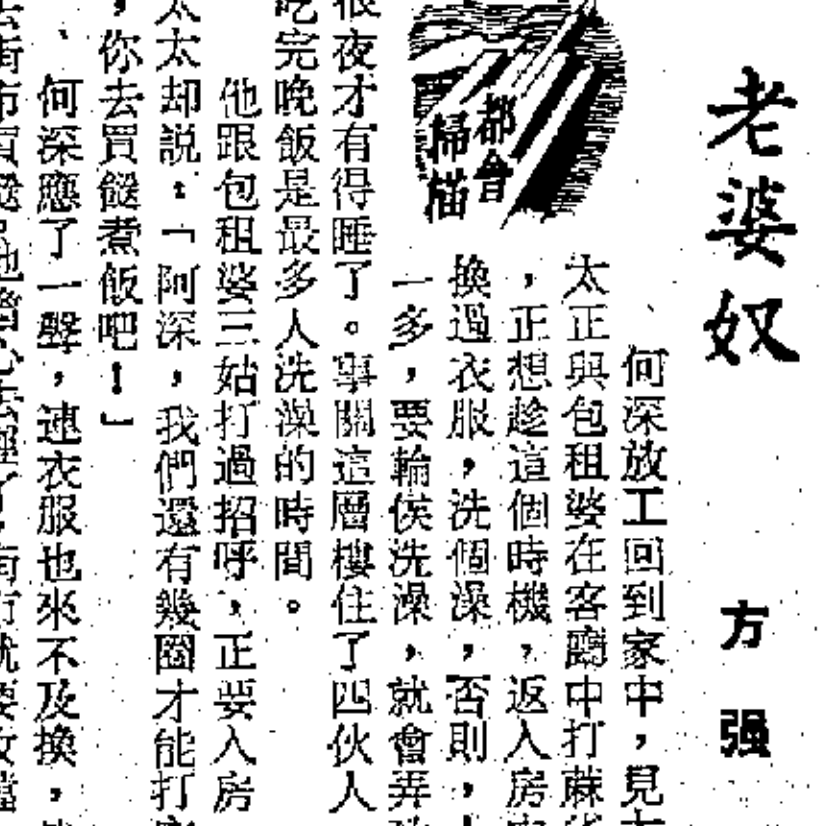 老婆奴
方强
都會
掃描
何深放工回到家中，見
太正與包租婆在客廳中打蔴
，正想趁這個時機，返入房
換過衣服，洗個澡，否則，
一多，要輪侯洗澡，就會弄
很夜才有得睡了。事關這層樓住了四伙人
吃完晚飯是最多人洗澡的時間。
他跟包租婆三姑打過招呼，正要入房
太太却説：「阿深，我們還有幾圈才能打
，你去買餸煮飯吧！」
何深應了一聲，連衣服也來不及換，